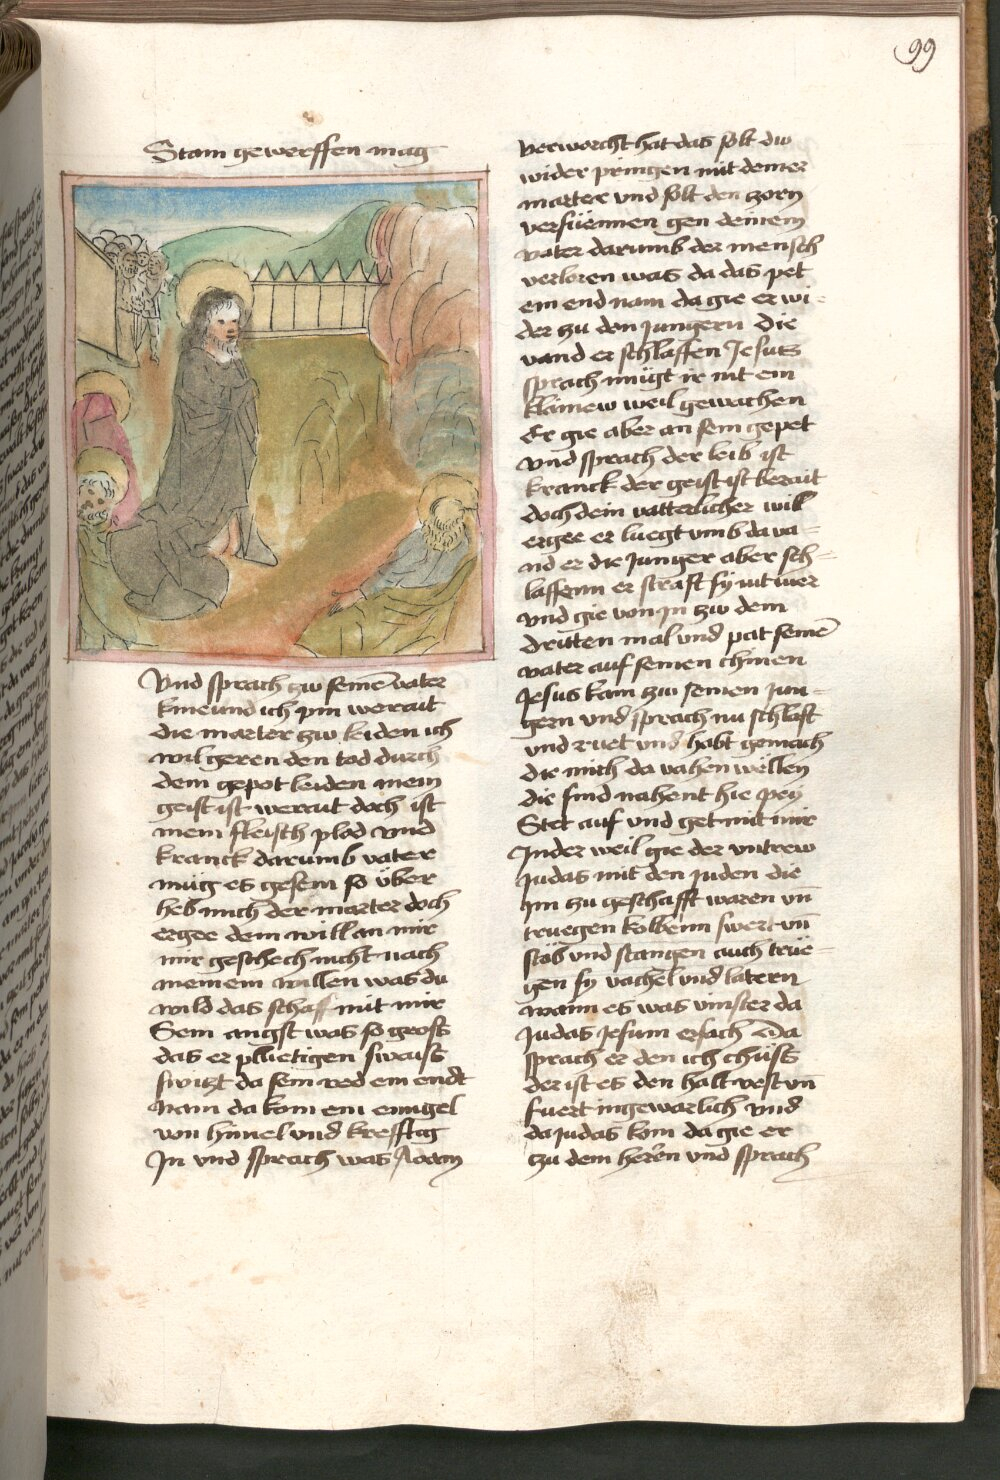 99
Stain gewerffen mag
Vnd sprach zw seinē vater
knieund ich pin werait
die marter zw leiden ich
wil geren den tod durch
dein gepot leiden mein
geist ist werait doch ist
mein fleisch plod vnd
kranck darumb vater
müg es gesein so über
heb mich der marter doch
ergee dein will an mir
mir geschech nicht nach
meinem willen was du
wild das schaff mit mir
Sein angst was so gross
das er pluetigen swaiss
switzt da sein red ein endt
nam da kom ein enngel
von himel vnd krefftig
In vnd sprach was Adam
verworcht hat das solt du
wider pringen mit deiner
marter vnd solt den zorn
versüennen gen deinem
vater darumb der mensch
verloren was da das pet
ein end nam da gie er wi-
der zu den Jungern Die
vand er schlaffen Jesus
sprach mügt ir nit ein
klainew weil gewachen
Er gie aber an sein gepet
vnd sprach der leib ist
kranck der geist ist berait
doch dein vätterlicher will
ergee er luegt vmb da va=
nd er die Junger aber sch=
laffenn er straft sy nit mer
vnd gie von In zw dem
dritten mal vnd pat seinē
vater auf seinen chnien
Jesus kam zw seinen Jun=
gern vnd sprach nu schlaft
vnd ruet vnd habt gemach
die mich da vahen wellen
die sind nahent hie pey
Stet auf vnd get mit mir
In der weil gie der vntrew
Judas mit den Juden die
Im zu geschafft waren vn̄
truegen kolbenn swert vn̄
stäb vnd stangen auch true=
gen sy vachel vnd latern
wann es was vinster da
Judas Jesum ersach Da
sprach er den ich chüss
der ist es den halt vest vn̄
fuert in gewarlich vnd
da Judas kom da gie er
zu dem herren vnd sprach